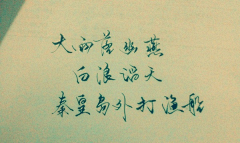 大雨落幽燕
白浪滔天
秦皇岛外打渔船